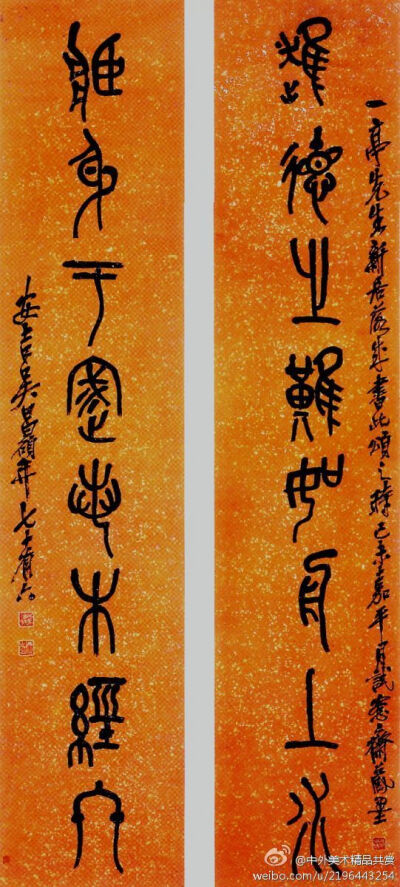 一亭先生新居落成書此頌之時己未嘉平月試愙齋藏墨
進德之難如舟上水
身于木經
安吉吳昌碩年七十有六
@中外美术精品共赏
weibo.com/u/2196443254